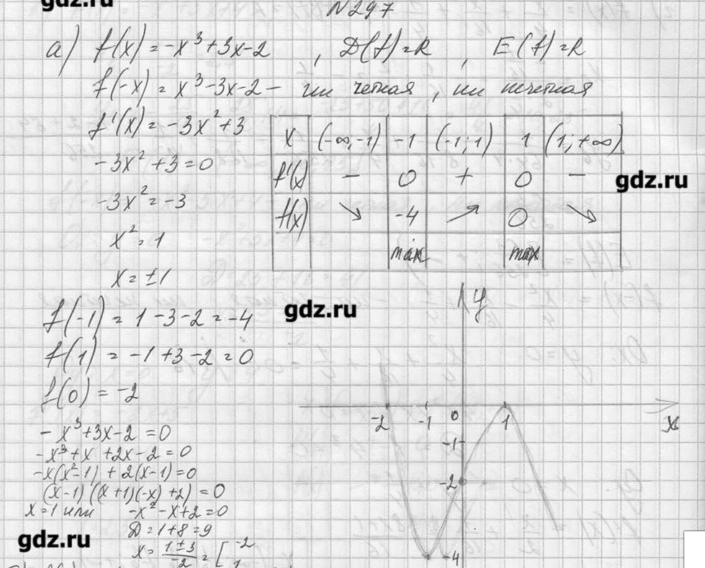 gdz.ru
N297
а) f(x) = -x³+3x-2 , D(f)=R , E(f)=R
f(-x) = x³-3x-2 - ни четная, ни нечетная
f'(x) = -3x²+3
-3x²+3=0
-3x²=-3
x²=1
x=±1
x (-∞,-1) -1 (-1;1) 1 (1,+∞)
f'(x) - 0 + 0 -
f(x) ↘ -4 ↗ 0 ↘
max
gdz.ru
gdz.ru
f(-1) = 1-3-2=-4
f(1) = -1+3-2=0
f(0) = -2
-x³+3x-2=0
-x³+x+2x-2=0
-x(x²-1)+2(x-1)=0
(x-1)((x+1)(-x)+2)=0
x=1 или -x²-x+2=0
D=1+8=9
x = (1±3)/(-2) = [ -2
1
y
-2 -1 0 1 x
-1
-2
-4
gdz.ru